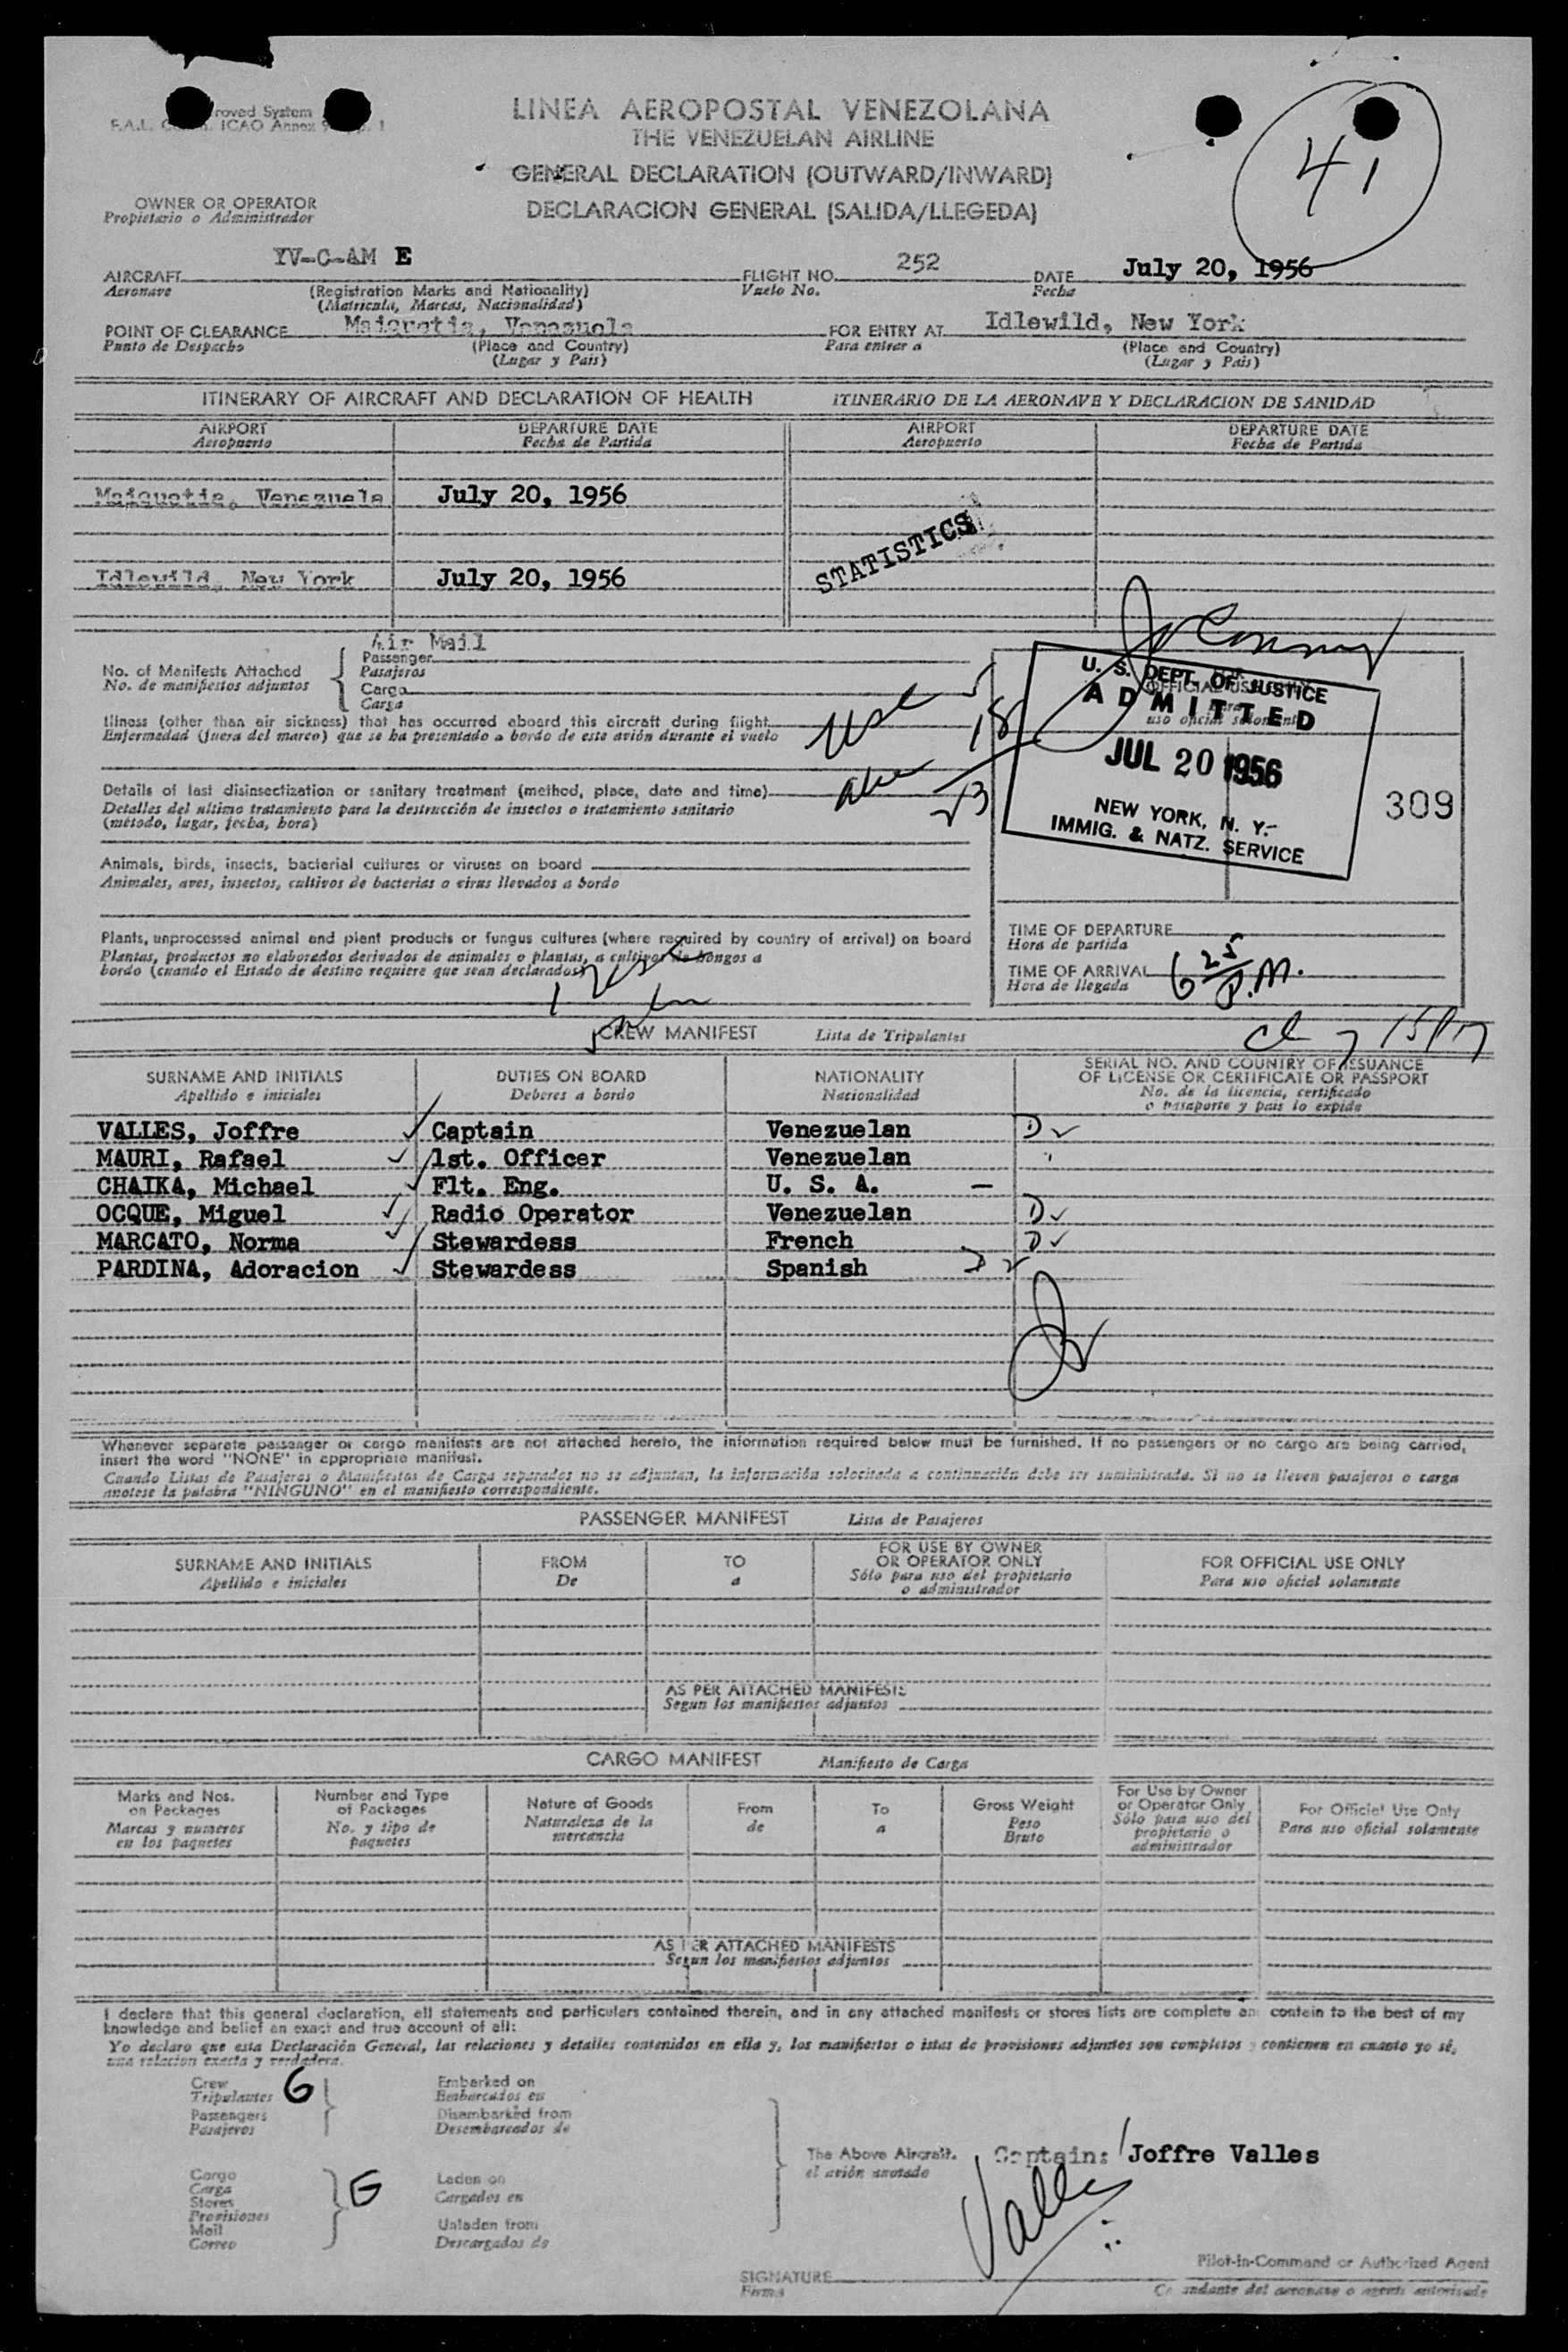 roved System
F.A.L. ICAO Annex 9
LINEA AEROPOSTAL VENEZOLANA
THE VENEZUELAN AIRLINE
GENERAL DECLARATION (OUTWARD/INWARD)
DECLARACION GENERAL (SALIDA/LLEGEDA)
41
OWNER OR OPERATOR
Propietario o Administrador
AIRCRAFT YV-C-AM E FLIGHT NO. 252 DATE July 20, 1956
Aeronave (Registration Marks and Nationality) Vuelo No. Fecha
(Matricula, Marcas, Nacionalidad)
POINT OF CLEARANCE Maiquetia, Venezuela FOR ENTRY AT Idlewild, New York
Punto de Despacho (Place and Country) Para entrar a (Place and Country)
(Lugar y Pais) (Lugar y Pais)
ITINERARY OF AIRCRAFT AND DECLARATION OF HEALTH ITINERARIO DE LA AERONAVE Y DECLARACION DE SANIDAD
AIRPORT DEPARTURE DATE AIRPORT DEPARTURE DATE
Aeropuerto Fecha de Partida Aeropuerto Fecha de Partida
Maiquetia, Venezuela July 20, 1956
STATISTICS
Idlewild, New York July 20, 1956
Air Mail
No. of Manifests Attached Passenger
No. de manifiestos adjuntos Pasajeros
Cargo
Carga
U. S. DEPT. OF JUSTICE
ADMITTED
JUL 20 1956
NEW YORK, N. Y.
IMMIG. & NATZ. SERVICE
309
Illness (other than air sickness) that has occurred aboard this aircraft during flight
Enfermedad (fuera del mareo) que se ha presentado a bordo de este avión durante el vuelo
usc 5
alien 18
23
Details of last disinsectization or sanitary treatment (method, place, date and time)
Detalles del ultimo tratamiento para la destrucción de insectos o tratamiento sanitario
(método, lugar, fecha, hora)
Animals, birds, insects, bacterial cultures or viruses on board
Animales, aves, insectos, cultivos de bacterias o virus llevados a bordo
Plants, unprocessed animal and plant products or fungus cultures (where required by country of arrival) on board
Plantas, productos no elaborados derivados de animales o plantas, o cultivos de hongos a
bordo (cuando el Estado de destino requiere que sean declarados)
TIME OF DEPARTURE
Hora de partida
TIME OF ARRIVAL 6 25 P.M.
Hora de llegada
CREW MANIFEST Lista de Tripulantes
SURNAME AND INITIALS DUTIES ON BOARD NATIONALITY SERIAL NO. AND COUNTRY OF ISSUANCE
OF LICENSE OR CERTIFICATE OR PASSPORT
Apellido e iniciales Deberes a bordo Nacionalidad No. de la licencia, certificado
o pasaporte y pais lo expide
VALLES, Joffre Captain Venezuelan D
MAURI, Rafael 1st. Officer Venezuelan "
CHAIKA, Michael Flt. Eng. U. S. A. —
OCQUE, Miguel Radio Operator Venezuelan D
MARCATO, Norma Stewardess French D
PARDINA, Adoracion Stewardess Spanish D
Whenever separate passenger or cargo manifests are not attached hereto, the information required below must be furnished. If no passengers or no cargo are being carried,
insert the word "NONE" in appropriate manifest.
Cuando Listas de Pasajeros o Manifiestos de Carga separados no se adjuntan, la información solocitada a continuación debe ser suministrada. Si no se lleven pasajeros o carga
anotese la palabra "NINGUNO" en el manifiesto correspondiente.
PASSENGER MANIFEST Lista de Pasajeros
SURNAME AND INITIALS FROM TO FOR USE BY OWNER OR OPERATOR ONLY FOR OFFICIAL USE ONLY
Apellido e iniciales De a Sólo para uso del propietario o administrador Para uso oficial solamente
AS PER ATTACHED MANIFESTS
Segun los manifiestos adjuntos
CARGO MANIFEST Manifiesto de Carga
Marks and Nos. on Packages Number and Type of Packages Nature of Goods From To Gross Weight For Use by Owner or Operator Only For Official Use Only
Marcas y numeros en los paquetes No. y tipo de paquetes Naturaleza de la mercancia de a Peso Bruto Sólo para uso del propietario o administrador Para uso oficial solamente
AS PER ATTACHED MANIFESTS
Segun los manifiestos adjuntos
I declare that this general declaration, all statements and particulars contained therein, and in any attached manifests or stores lists are complete an contein to the best of my
knowledge and belief an exact and true account of all:
Yo declaro que esta Declaración General, las relaciones y detalles contenidos en ella y, los manifiertos o istas de provisiones adjuntos son completos y contienen en cuanto yo sé,
una relacion exacta y verdadera.
Crew 6 Embarked on
Tripulantes Embarcados en
Passengers Disembarked from
Pasajeros Desembarcados de
The Above Aircraft. Captain: Joffre Valles
el avión anotado
Cargo Laden on
Carga Cargados en
Stores
Provisiones
Mail Unladen from
Correo Descargados de
Valles
Pilot-in-Command or Authorized Agent
SIGNATURE
Firma
andante del aeronave o agente autorisade